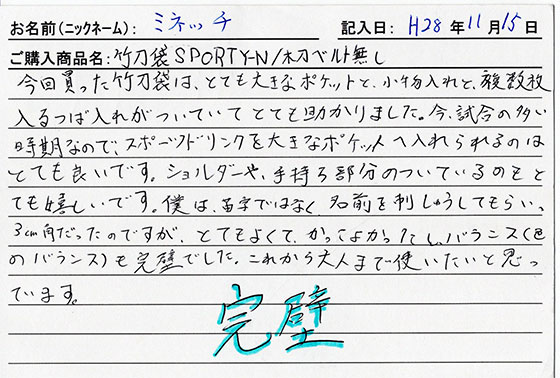 お名前(ニックネーム): ミネッチ 記入日: H28 年 11 月 15 日
ご購入商品名: 竹刀袋SPORTY-N/木刀ベルト無し
今回買った竹刀袋は、とても大きなポケットと、小物入れと、複数枚
入るつば入れがついていてとても助かりました。今、試合の多い
時期なので、スポーツドリンクを大きなポケットへ入れられるのは
とても良いです。ショルダーや、手持ち部分のついているのもと
ても嬉しいです。僕は、苗字ではなく、名前を刺しゅうしてもらい、
3cm角だったのですが、とてもよくて、かっこよかったし、バランス(色
のバランス)も完璧でした。これから大人まで使いたいと思っ
ています。
完璧